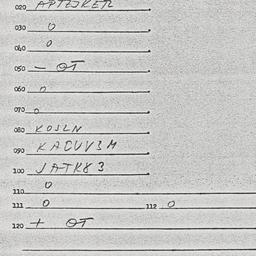 020 APTZJKEZL
030 0
040 0
050 - OT
060 0
070 0
080 KOJLN
090 KACUV3M
100 JATK83
110 0
111 0 112 0
120 + OT